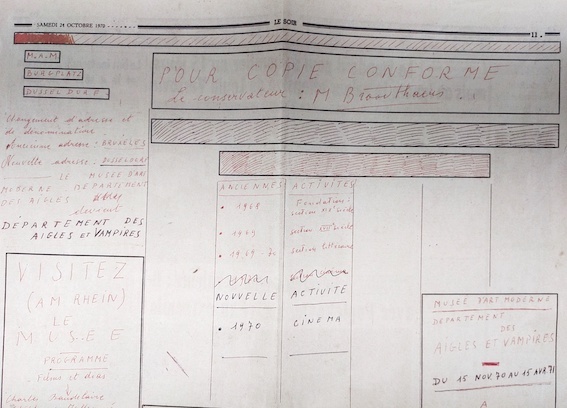 SAMEDI 24 OCTOBRE 1970
LE SOIR
11
M.A.M
BURGPLATZ
DUSSELDORF
Changement d'adresse et
de dénomination
Ancienne adresse : BRUXELLES
Nouvelle adresse : DUSSELDORF
LE MUSÉE D'ART
MODERNE DEPARTEMENT
DES AIGLES
devient
DÉPARTEMENT DES
AIGLES ET VAMPIRES
VISITEZ
(AM RHEIN)
LE
MUSEE
PROGRAMME
Films et
Charles Baudelaire
POUR COPIE CONFORME
Le conservateur : M Broodthaers.
ANCIENNES ACTIVITÉS
• 1968 Fondation.
section XIX siècle
• 1969 section XVII siècle
• 1969-70 section littéraire
NOUVELLE ACTIVITE
• 1970 CINEMA
MUSEE D'ART MODERNE
DEPARTEMENT
DES
AIGLES ET VAMPIRES
DU 15 NOV. 70 AU 15 AVR. 71
A